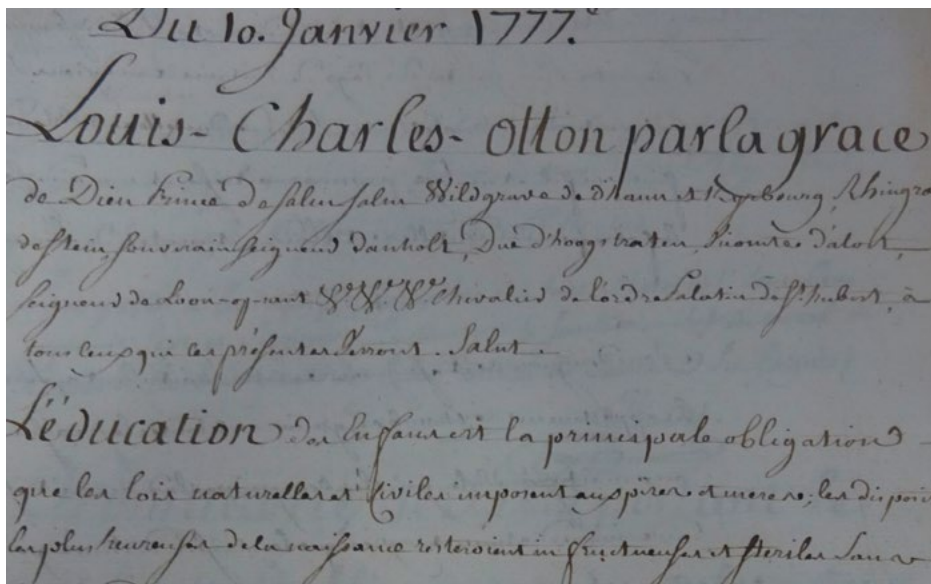 Du 10. Janvier 1777.
Louis-Charles-Otton par la grace
de Dieu Prince de Salm Salm Wildgrave de dhaun et Kyrbourg, Rhingra
de Stein, souverain seigneur d'anholt, Duc d'hoogstraten, vicomte d'alost,
seigneur de Loon-op-sant &c. &c. &c. chevalier de l'ordre Palatin de St. hubert, à
tous ceux qui ces présentes verront. Salut.
L'éducation des Enfans est la principale obligation
que les lois naturelles et Civiles imposent aux pères et meres; les disposi
les plus heureuses de la naissance resteroient infructueuses et steriles sans